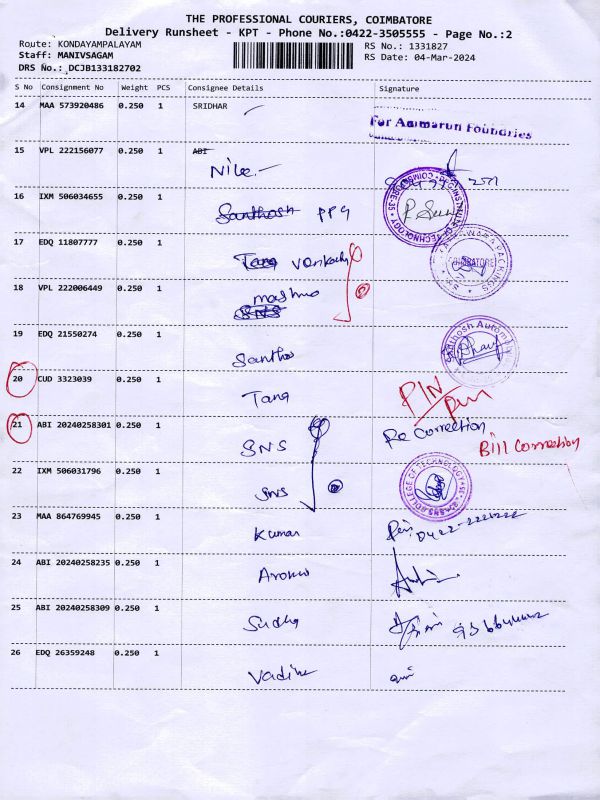 THE PROFESSIONAL COURIERS, COIMBATORE
Delivery Runsheet - KPT - Phone No.:0422-3505555 - Page No.:2
Route: KONDAYAMPALAYAM RS No.: 1331827
Staff: MANIVSAGAM RS Date: 04-Mar-2024
DRS No.: DCJB133182702
S No Consignment No Weight PCS Consignee Details Signature
14 MAA 573920486 0.250 1 SRIDHAR
For Ammarun Foundries
15 VPL 222156077 0.250 1 ABI
Nile
16 IXM 506034655 0.250 1 Santhosh PPG
17 EDQ 11807777 0.250 1 Tang
COIMBATORE
18 VPL 222006449 0.250 1
SNS
19 EDQ 21550274 0.250 1 Santho
Santhosh Automa
20 CUD 3323039 0.250 1 Tang
PIN
21 ABI 20240258301 0.250 1 SNS Re Correction
Bill Correction
22 IXM 506031796 0.250 1 SNS
SNS COLLEGE OF TECHNOLOGY
23 MAA 864769945 0.250 1 Kumar
24 ABI 20240258235 0.250 1
25 ABI 20240258309 0.250 1 Sudha
26 EDQ 26359248 0.250 1